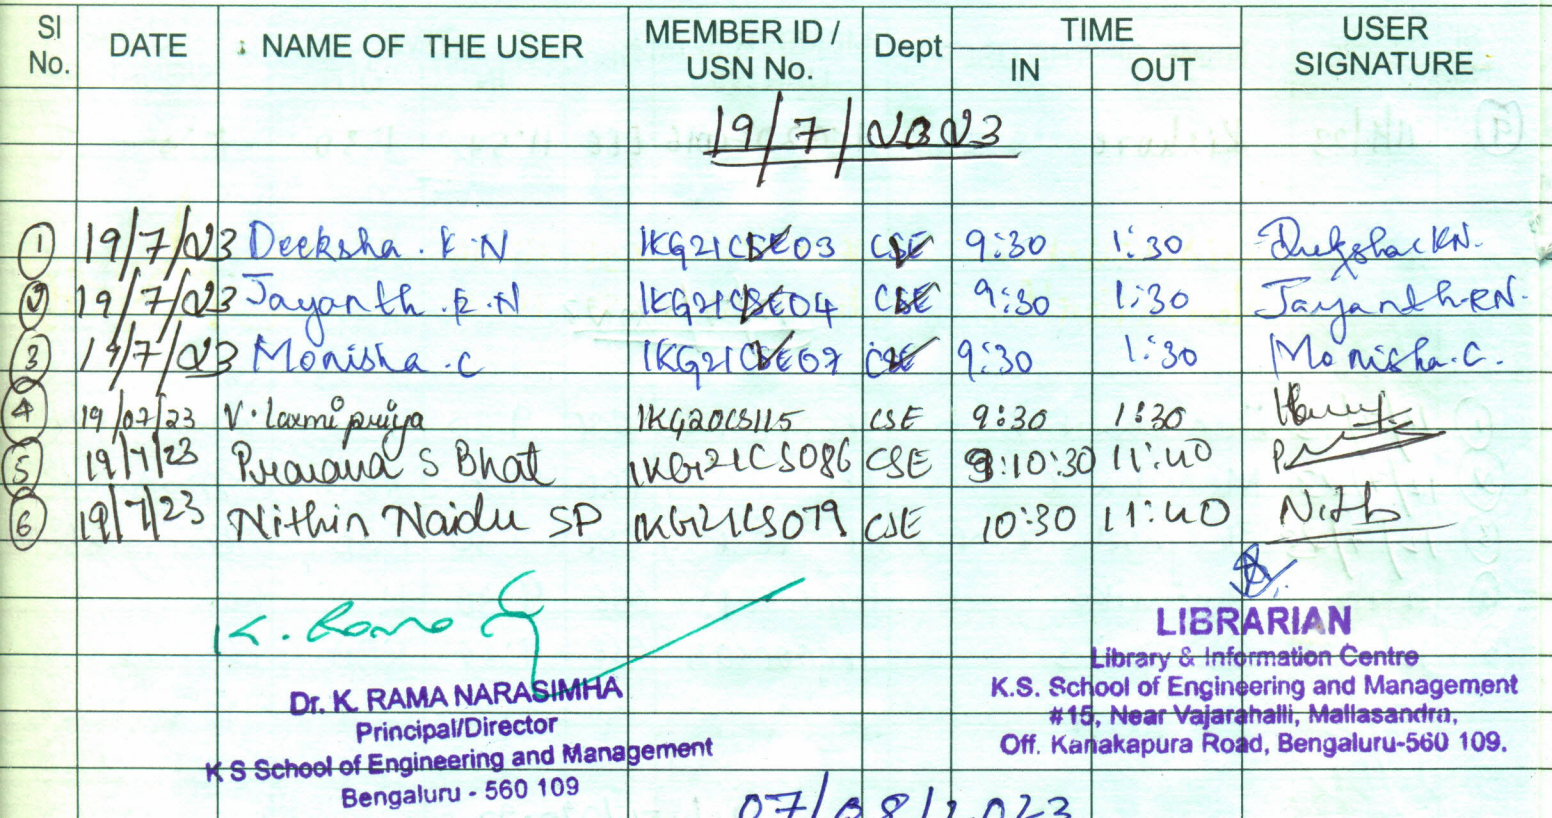 Sl No. DATE NAME OF THE USER MEMBER ID / USN No. Dept TIME IN OUT USER SIGNATURE
19/7/2023
1 19/7/23 Deeksha . K . N 1KG21CSE03 CSE 9:30 1:30 Deeksha KN.
2 19/7/23 Jayanth . R . N 1KG21CSE04 CSE 9:30 1:30 Jayanth RN.
3 19/7/23 Monisha . C 1KG21CSE07 CSE 9:30 1:30 Monisha.C.
4 19/07/23 V. laxmi priya 1KG20CS115 CSE 9:30 1:30
5 19/7/23 Pravana S Bhat 1KG21CS086 CSE 10:30 11:40
6 19/7/23 Nithin Naidu SP 1KG21CS079 CSE 10:30 11:40 Nith
K. Rama
Dr. K. RAMA NARASIMHA
Principal/Director
K S School of Engineering and Management
Bengaluru - 560 109
LIBRARIAN
Library & Information Centre
K.S. School of Engineering and Management
#15, Near Vajarahalli, Mallasandra,
Off. Kanakapura Road, Bengaluru-560 109.
07/08/2023